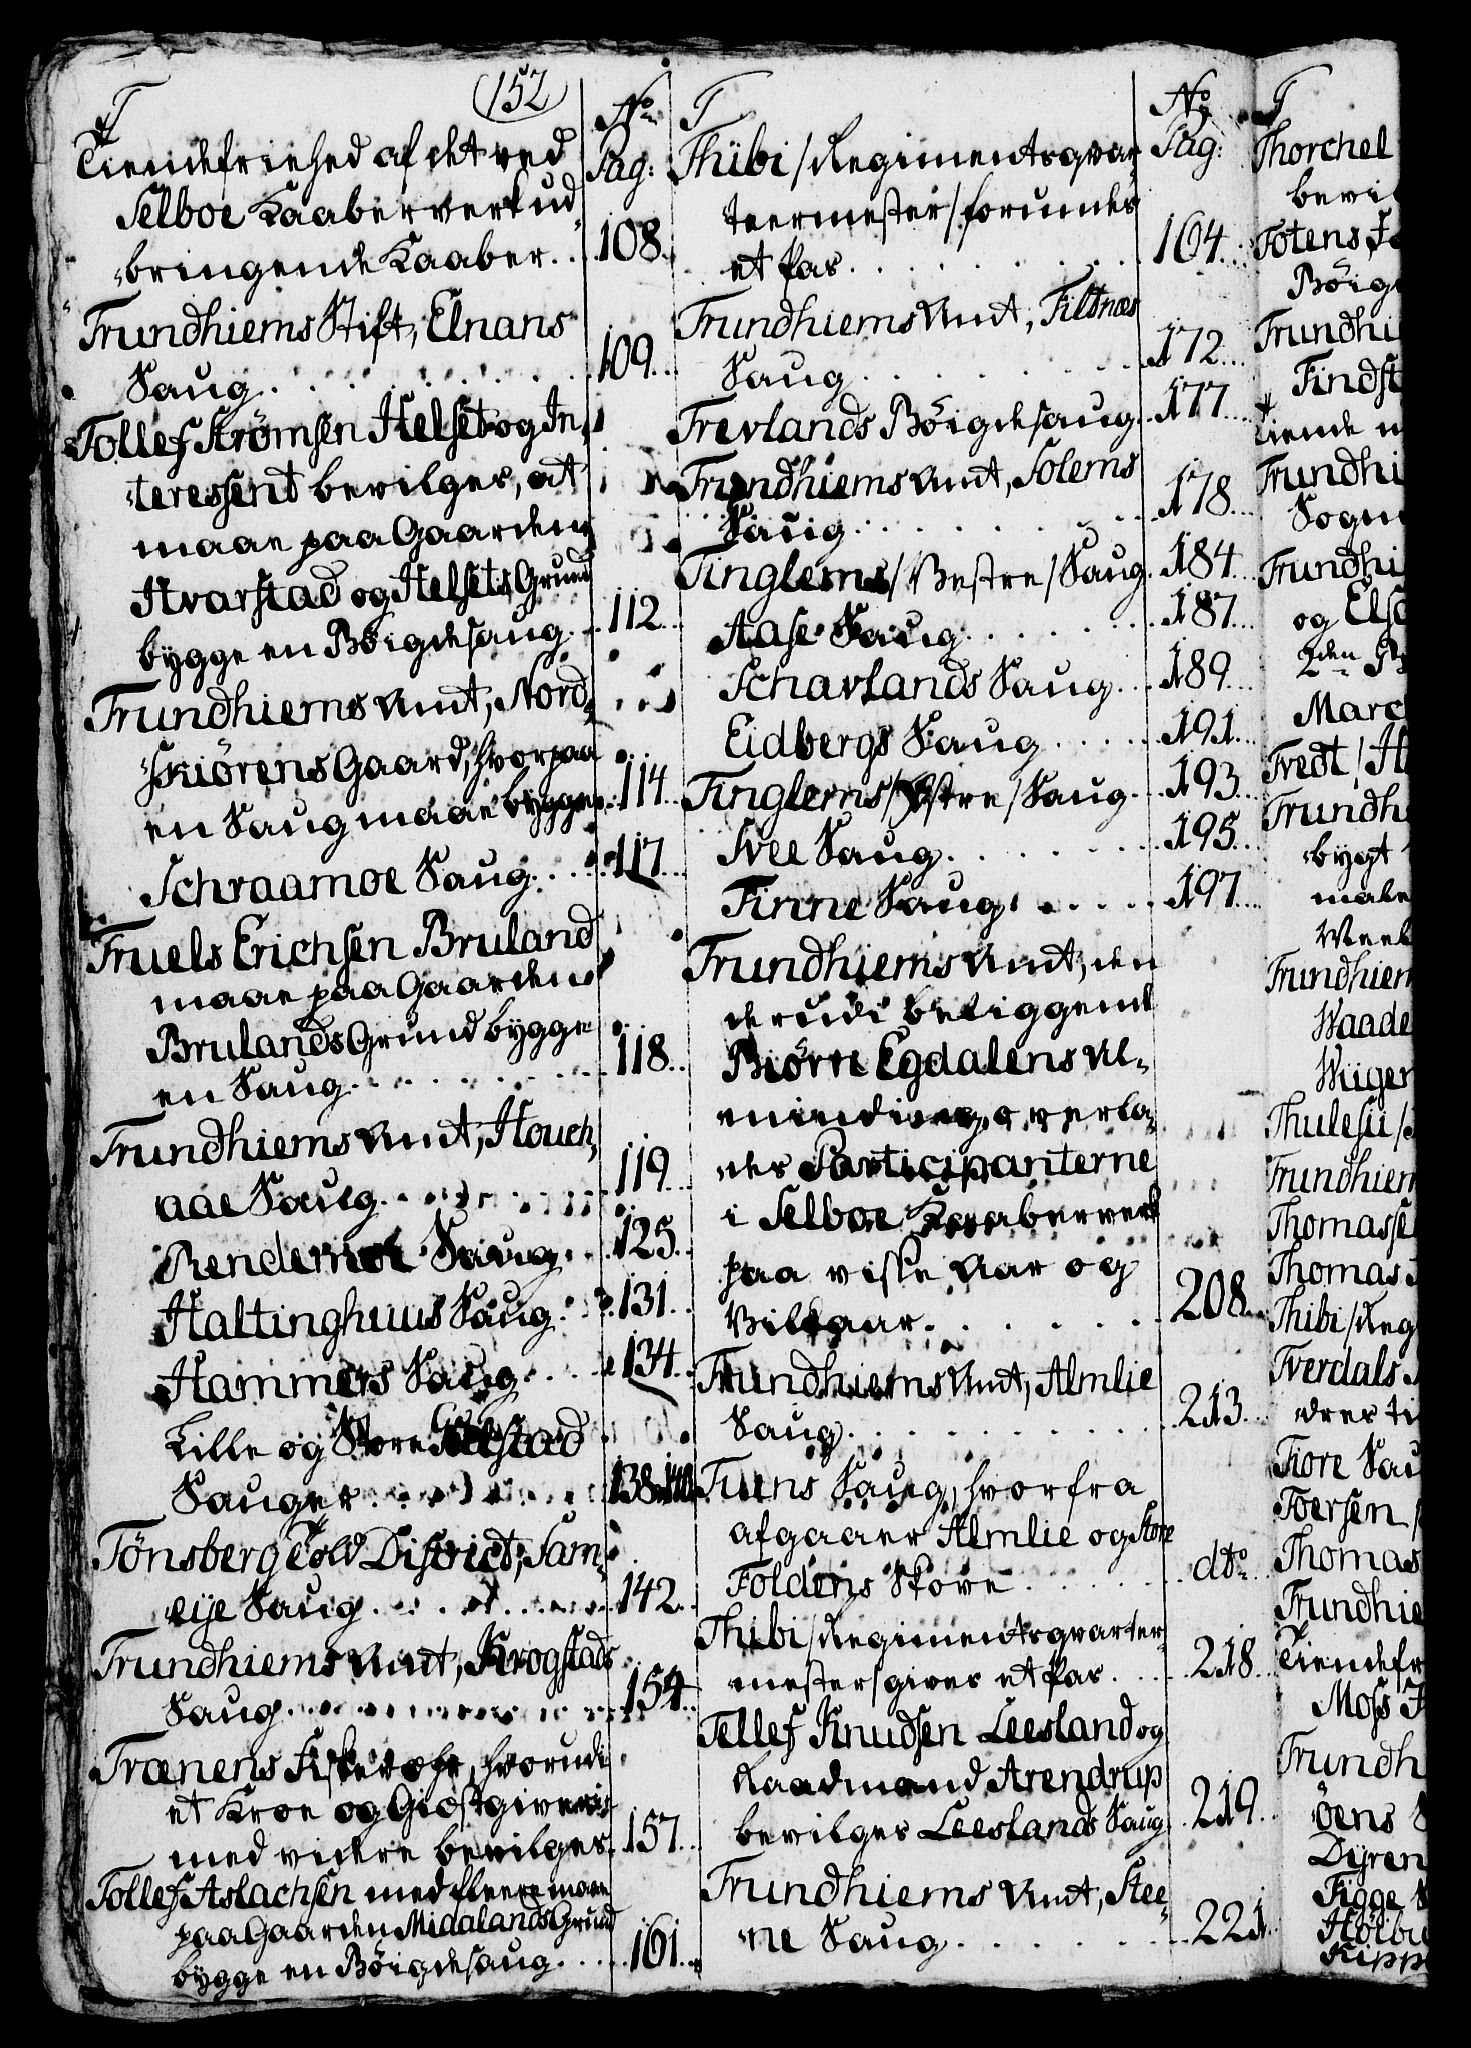 152
T
No
Pag:
Tiendefriehed af det ved
Selboe Kaaberverk ud,
bringende Kaaber.. 108.
Trundhiems Stift, Elnans
Saug. 109.
Tollef Strømsen Helset og In,
teressent bevilges, at
maae paa Gaardens
Hvarstad og Helsets Grund
bygge en Böigdesaug. 112.
Trundhiems Amt, Nord,
skiörens Gaard, hvorpaa
en Saug maae bygges. 114.
Schraamoe Saug. 117.
Truels Erichsen Bruland
maae paa Gaarden
Brulands Grund bygge
en Saug. 118.
Trundhiems Amt, Houch,
aae Saug. 119.
Rendemoe Saug. 125.
Haltinghuus Saug. 131.
Hammers Saug. 134.
Lille og Store
Sauger. 138. 140.
Tönsberg District, Sam,
eije Saug. 142.
Trundhiems Amt, Krogstads
Saug. 154.
Trænens Fiskevæhr, hvorudi
et Kroe og Giæstgiverie
med videre bevilges. 157.
Tollef Aslachsen med fleere maae
paa Gaarden Midalands Grund
bygge en Böigdesaug. 161.
T
No
Pag:
Thibi /Regimentsqvar
teermester/ forundes
et Pas. 164.
Trundhiems Amt, Filtnæs
Saug. 172.
Trevlands Böigdesaug. 177.
Trundhiems Amt, Solems
Saug. 178.
Tinglems /Vestre/ Saug. 184.
Aase Saug. 187.
Schavlands Saug. 189.
Eidbergs Saug. 191.
Tinglems /Østre/ Saug. 193.
Svee Saug. 195.
Finne Saug. 197.
Trundhiems Amt, den
derudi beliggende
Biörn Egdalens Al,
meinding overla,
des Participanterne
i Selboe Kaaberverk
paa visse Aar og
Vilkaar. 208.
Trundhiems Amt, Almlie
Saug. 213.
Tuens Saug, hvorfra
afgaaer Almlie og Store
Foldens Skove dto
Thibi /Regimentsqvarter,
mester/ gives et Pas. 218.
Tellef Knudsen Leesland og
Raadmand Arendrup
bevilges Leeslands Saug. 219.
Trundhiems Amt, Stee,
ne Saug. 221.
T
Thorchel
bevil
Totens
Böig
Trundhi
Findst
Tiende
Trundhi
Sogn
Trundhi
og Els
2den
Marc
Tvedt /H
Trundh
bygt
male
Trundhiem
Waade
Wiiger
Thulesii /
Trundhiem
Thomasse
Thomas
Thibi /Reg
Tverdals
dres ti
Tiore Sau
Toersen /
Thomas
Trundhie
Tiendefr
Moss
Trundh
öens
Dijren
Tigge
Höibi
Kipp